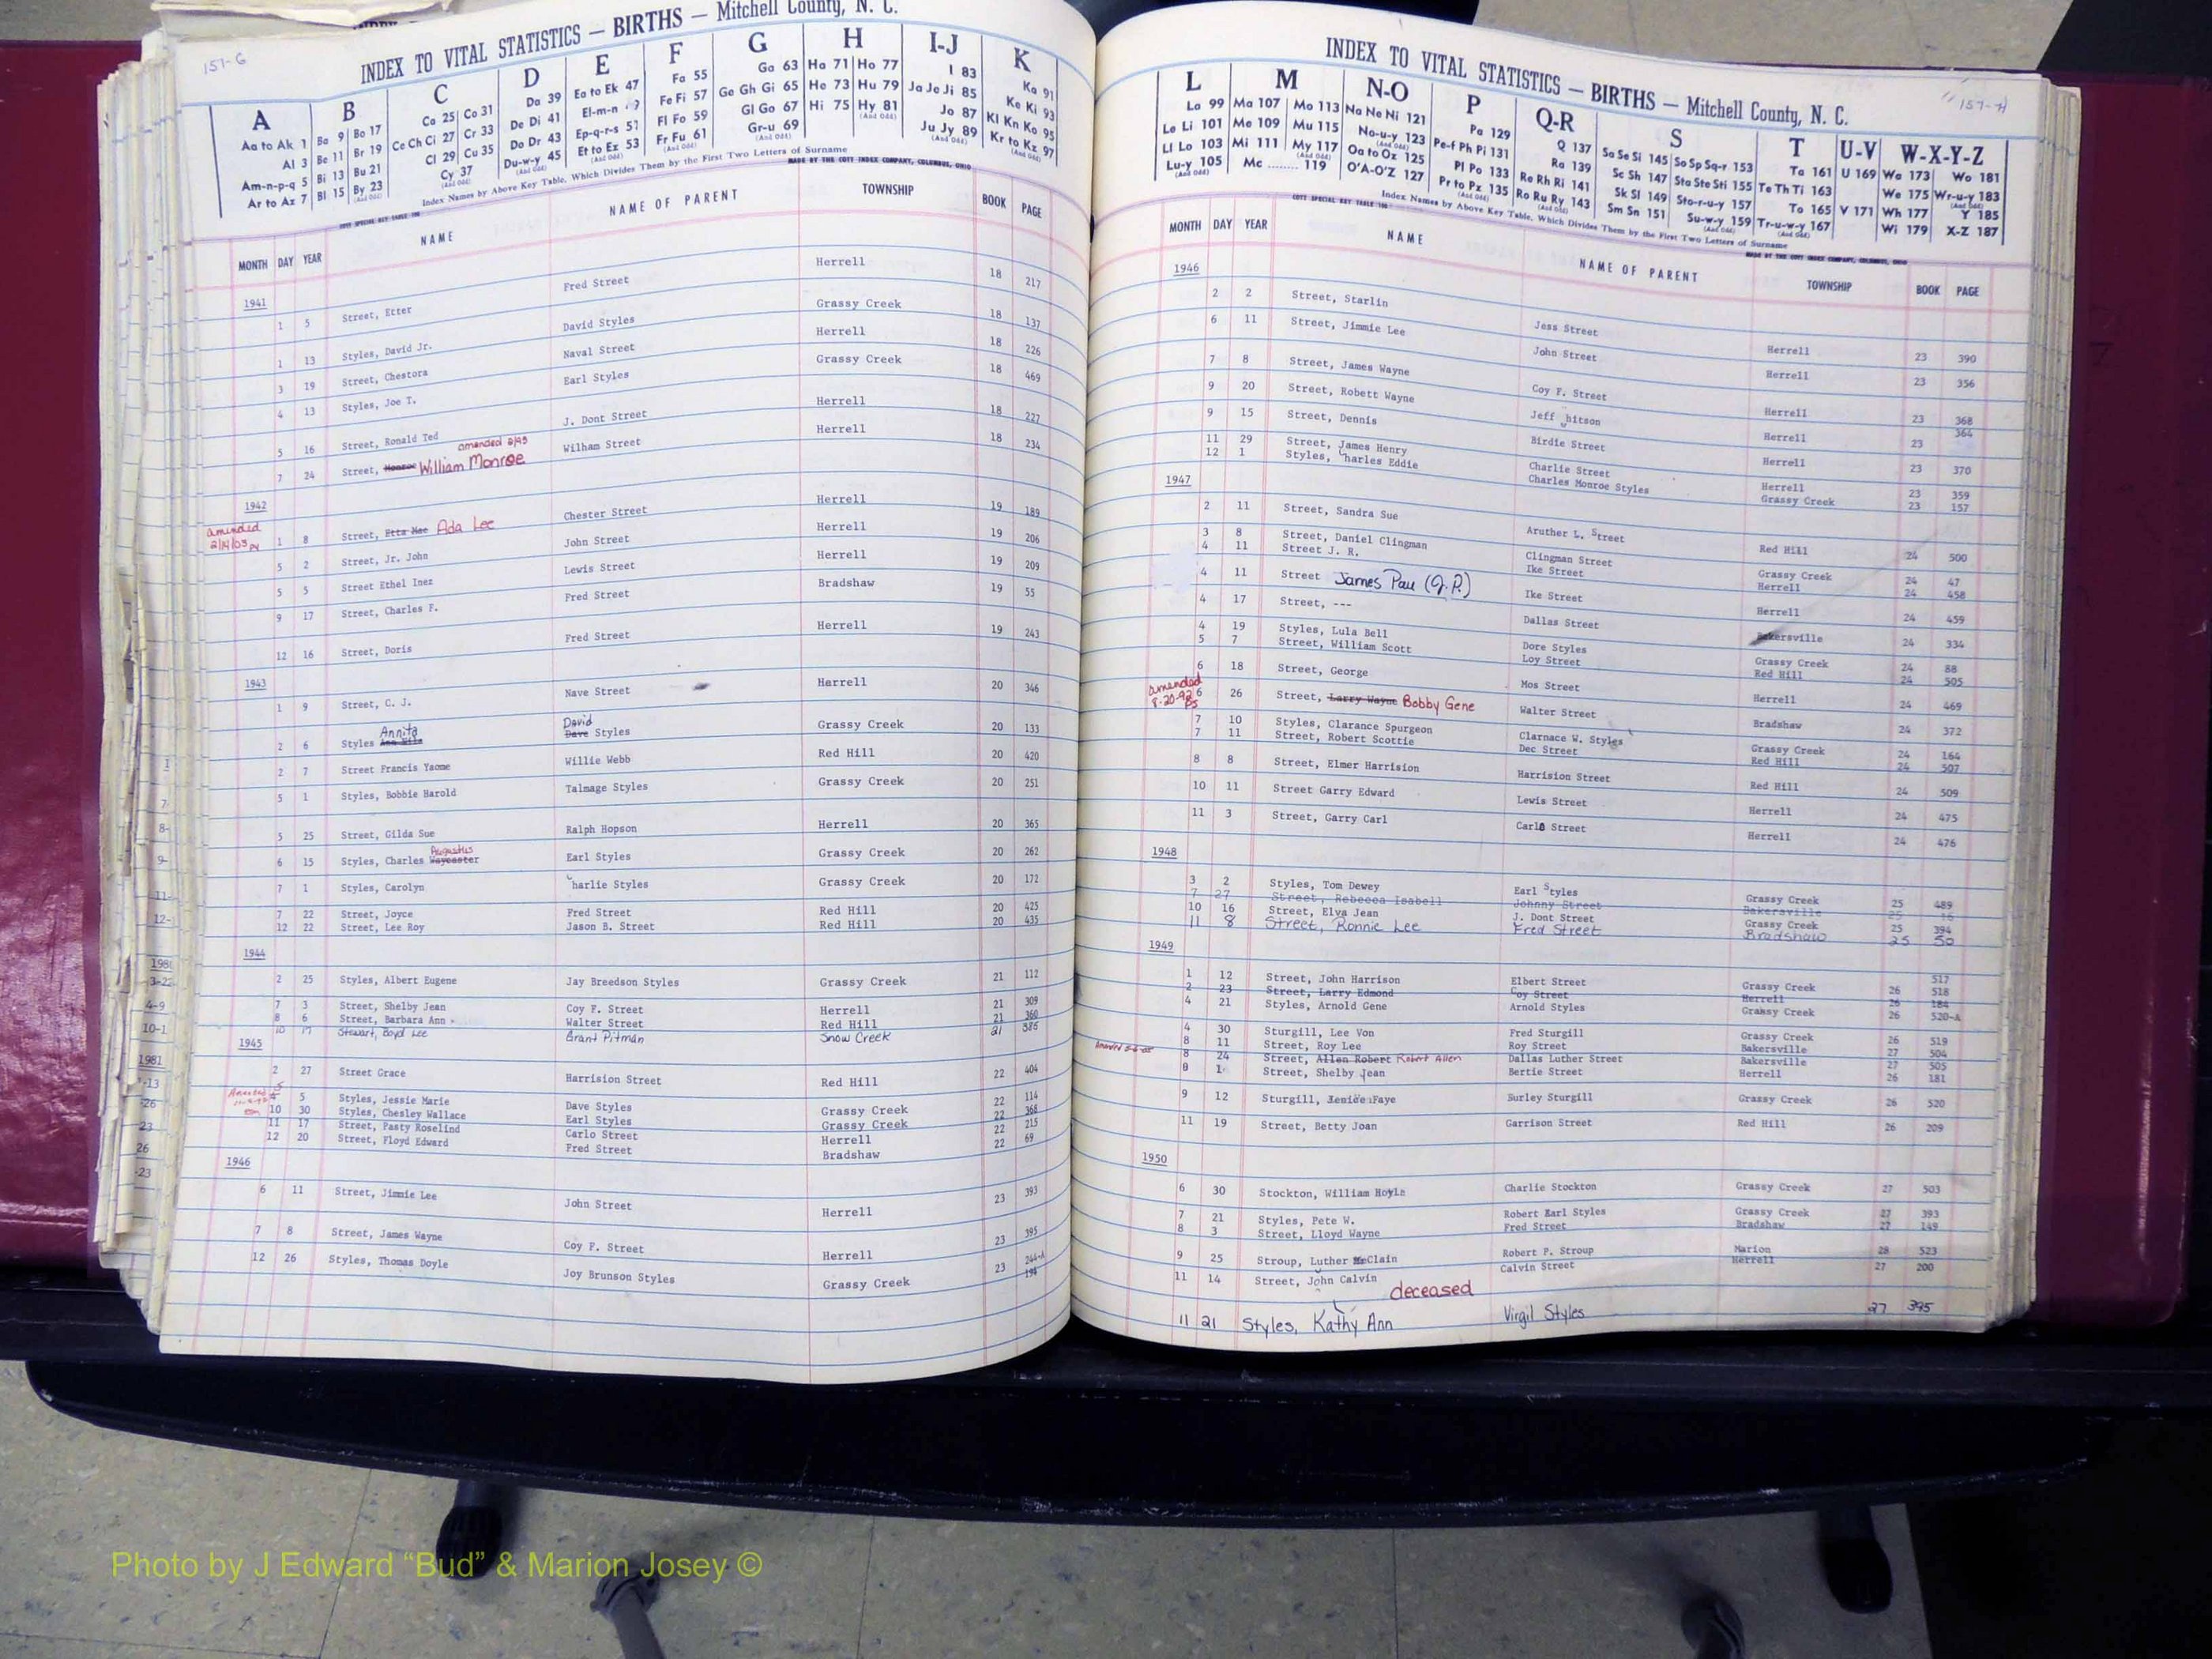 157-G
INDEX TO VITAL STATISTICS — BIRTHS — Mitchell County, N. C.
A B C D E F G H I-J K
Aa to Ak 1 Ba 9 Bo 17 Ca 25 Co 31 Da 39 Ea to Ek 47 Fa 55 Ga 63 Ha 71 Ho 77 I 83 Ka 91
Al 3 Be 11 Br 19 Ce Ch Ci 27 Cr 33 De Di 41 El-m-n Fe Fi 57 Ge Gh Gi 65 He 73 Hu 79 Ja Je Ji 85 Ke Ki 93
Am-n-p-q 5 Bi 13 Bu 21 Cl 29 Cu 35 Do Dr 43 Ep-q-r-s 51 Fl Fo 59 Gl Go 67 Hi 75 Hy 81 Jo 87 Kl Kn Ko 95
Ar to Az 7 Bl 15 By 23 Cy 37 Du-w-y 45 Et to Ez 53 Fr Fu 61 Gr-u 69 Ju Jy 89 Kr to Kz 97
Index Names by Above Key Table, Which Divides Them by the First Two Letters of Surname
MADE BY THE COTT INDEX COMPANY, COLUMBUS, OHIO
MONTH DAY YEAR NAME NAME OF PARENT TOWNSHIP BOOK PAGE
1941
1 5 Street, Etter Fred Street Herrell 18 217
1 13 Styles, David Jr. David Styles Grassy Creek 18 137
3 19 Street, Chestora Naval Street Herrell 18 226
4 13 Styles, Joe T. Earl Styles Grassy Creek 18 469
5 16 Street, Ronald Ted J. Dont Street Herrell 18 227
amended 2/93
7 24 Street, Monroe William Monroe Wilham Street Herrell 18 234
1942
amended 2/14/03
1 8 Street, Etta Mae Ada Lee Chester Street Herrell 19 189
5 2 Street, Jr. John John Street Herrell 19 206
5 5 Street Ethel Inez Lewis Street Herrell 19 209
9 17 Street, Charles F. Fred Street Bradshaw 19 55
12 16 Street, Doris Fred Street Herrell 19 243
1943
1 9 Street, C. J. Nave Street Herrell 20 346
Annita David
2 6 Styles Dave Styles Grassy Creek 20 133
2 7 Street Francis Yaome Willie Webb Red Hill 20 420
5 1 Styles, Bobbie Harold Talmage Styles Grassy Creek 20 251
5 25 Street, Gilda Sue Ralph Hopson Herrell 20 365
Augustus
6 15 Styles, Charles Waycaster Earl Styles Grassy Creek 20 262
7 1 Styles, Carolyn Charlie Styles Grassy Creek 20 172
7 22 Street, Joyce Fred Street Red Hill 20 425
12 22 Street, Lee Roy Jason B. Street Red Hill 20 435
1944
2 25 Styles, Albert Eugene Jay Breedson Styles Grassy Creek 21 112
7 3 Street, Shelby Jean Coy F. Street Herrell 21 309
8 6 Street, Barbara Ann Walter Street Red Hill 21 360
10 17 Stewart, Boyd Lee Grant Pitman Snow Creek 21 386
1945
2 27 Street Grace Harrision Street Red Hill 22 404
Amended
5 Styles, Jessie Marie Dave Styles Grassy Creek 22 114
10 30 Styles, Chesley Wallace Earl Styles Grassy Creek 22 368
11 17 Street, Pasty Roselind Carlo Street Herrell 22 215
12 20 Street, Floyd Edward Fred Street Bradshaw 22 69
1946
6 11 Street, Jimmie Lee John Street Herrell 23 393
7 8 Street, James Wayne Coy F. Street Herrell 23 395
12 26 Styles, Thomas Doyle Joy Brunson Styles Grassy Creek 23 244-A 194
157-H
INDEX TO VITAL STATISTICS — BIRTHS — Mitchell County, N. C.
L M N-O P Q-R S T U-V W-X-Y-Z
La 99 Ma 107 Mo 113 Na Ne Ni 121 Pa 129 Q 137 Sa Se Si 145 So Sp Sq-r 153 Ta 161 U 169 Wa 173 Wo 181
Le Li 101 Me 109 Mu 115 No-u-y 123 Pe-f Ph Pi 131 Ra 139 Sc Sh 147 Sta Ste Sti 155 Te Th Ti 163 We 175 Wr-u-y 183
Ll Lo 103 Mi 111 My 117 Oa to Oz 125 Pl Po 133 Re Rh Ri 141 Sk Sl 149 Sto-r-u-y 157 To 165 V 171 Wh 177 Y 185
Lu-y 105 Mc 119 O'A-O'Z 127 Pr to Px 135 Ro Ru Ry 143 Sm Sn 151 Su-w-y 159 Tr-u-w-y 167 Wi 179 X-Z 187
Index Names by Above Key Table, Which Divides Them by the First Two Letters of Surname
MADE BY THE COTT INDEX COMPANY, COLUMBUS, OHIO
MONTH DAY YEAR NAME NAME OF PARENT TOWNSHIP BOOK PAGE
1946
2 2 Street, Starlin Jess Street Herrell 23 390
6 11 Street, Jimmie Lee John Street Herrell 23 356
7 8 Street, James Wayne Coy F. Street Herrell 23 368
9 20 Street, Robett Wayne Jeff Whitson Herrell 23 364
9 15 Street, Dennis Birdie Street Herrell 23 370
11 29 Street, James Henry Charlie Street Herrell 23 359
12 1 Styles, Charles Eddie Charles Monroe Styles Grassy Creek 23 157
1947
2 11 Street, Sandra Sue Aruther L. Street Red Hill 24 500
3 8 Street, Daniel Clingman Clingman Street Grassy Creek 24 47
4 11 Street J. R. Ike Street Herrell 24 458
4 11 Street James Pau (J.P.) Ike Street Herrell 24 459
4 17 Street, --- Dallas Street Bakersville 24 334
4 19 Styles, Lula Bell Dore Styles Grassy Creek 24 88
5 7 Street, William Scott Loy Street Red Hill 24 505
6 18 Street, George Mos Street Herrell 24 469
amended 8-20-92
6 26 Street, Larry Wayne Bobby Gene Walter Street Bradshaw 24 372
7 10 Styles, Clarance Spurgeon Clarnace W. Styles Grassy Creek 24 164
7 11 Street, Robert Scottie Dec Street Red Hill 24 507
8 8 Street, Elmer Harrision Harrision Street Red Hill 24 509
10 11 Street Garry Edward Lewis Street Herrell 24 475
11 3 Street, Garry Carl Carlo Street Herrell 24 476
1948
3 2 Styles, Tom Dewey Earl Styles Grassy Creek 25 489
7 27 Street, Rebecca Isabell Johnny Street Bakersville 25 16
10 16 Street, Elva Jean J. Dont Street Grassy Creek 25 394
11 8 Street, Ronnie Lee Fred Street Bradshaw 25 50
1949
1 12 Street, John Harrison Elbert Street Grassy Creek 26 517
2 23 Street, Larry Edmond Coy Street Herrell 26 518 184
4 21 Styles, Arnold Gene Arnold Styles Grassy Creek 26 520-A
4 30 Sturgill, Lee Von Fred Sturgill Grassy Creek 26 519
8 11 Street, Roy Lee Roy Street Bakersville 27 504
8 24 Street, Allen Robert Robert Allen Dallas Luther Street Bakersville 27 505
8 1 Street, Shelby Jean Bertie Street Herrell 26 181
9 12 Sturgill, Faye Surley Sturgill Grassy Creek 26 520
11 19 Street, Betty Joan Garrison Street Red Hill 26 209
1950
6 30 Stockton, William Hoyle Charlie Stockton Grassy Creek 27 503
7 21 Styles, Pete W. Robert Earl Styles Grassy Creek 27 393
8 3 Street, Lloyd Wayne Fred Street Bradshaw 27 149
9 25 Stroup, Luther McClain Robert P. Stroup Marion 28 523
11 14 Street, John Calvin Calvin Street Herrell 27 200
deceased
11 21 Styles, Kathy Ann Virgil Styles 27 395
Photo by J Edward “Bud” & Marion Josey ©